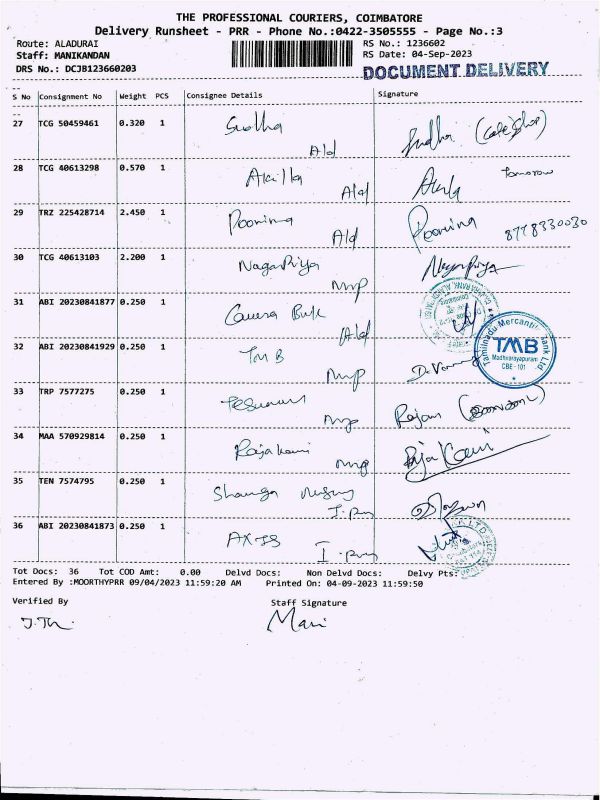 THE PROFESSIONAL COURIERS, COIMBATORE
Delivery Runsheet - PRR - Phone No.:0422-3505555 - Page No.:3
Route: ALADURAI
RS No.: 1236602
Staff: MANIKANDAN
RS Date: 04-Sep-2023
DRS No.: DCJB123660203
DOCUMENT DELIVERY
S No Consignment No Weight PCS Consignee Details Signature
27 TCG 50459461 0.320 1 Sudha Ald
28 TCG 40613298 0.570 1 Akilla Ald Akila Tomorow
29 TRZ 225428714 2.450 1 Poornima Ald Poornima 8778330030
30 TCG 40613103 2.200 1 NagaPriya mvp NagaPriya
31 ABI 20230841877 0.250 1 Canera Bank Ald
32 ABI 20230841929 0.250 1 TMB mvp
Tamilnadu Mercantile Bank Ltd
TMB
Madhvarayapuram
CBE - 101
33 TRP 7577275 0.250 1 mvp Rajan
34 MAA 570929814 0.250 1 Rajakani mvp Raja Kani
35 TEN 7574795 0.250 1 Shanga
36 ABI 20230841873 0.250 1 AXIS
Tot Docs: 36 Tot COD Amt: 0.00 Delvd Docs: Non Delvd Docs: Delvy Pts:
Entered By :MOORTHYPRR 09/04/2023 11:59:20 AM Printed On: 04-09-2023 11:59:50
Verified By
Staff Signature
Mani